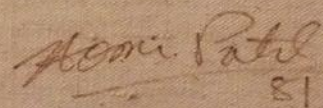 Homi Patel
81